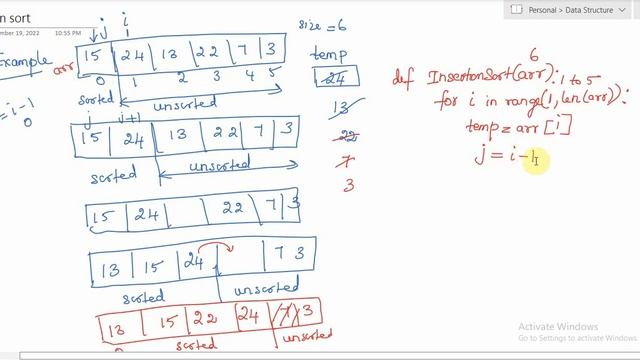 n sort
Personal > Data Structure
mber 19, 2022 10:55 PM
j i
size = 6
Example
arr
15 24 13 22 7 3
0 1 2 3 4 5
temp
24
= i-1
0
sorted unsorted
j j+1
15 24 13 22 7 3
scorted unsorted
13
22
7
3
15 24 22 7 3
13 15 24 7 3
scorted unsorted
13 15 22 24 7 3
scorted unsorted
6
def InsertionSort(arr): 1 to 5
for i in range(1, len(arr)):
temp = arr[i]
j = i-1
Activate Windows
Go to Settings to activate Windows.